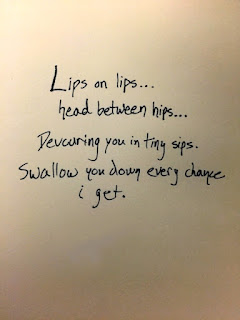 Lips on lips...
head between hips...
Devouring you in tiny sips.
Swallow you down every chance
i get.